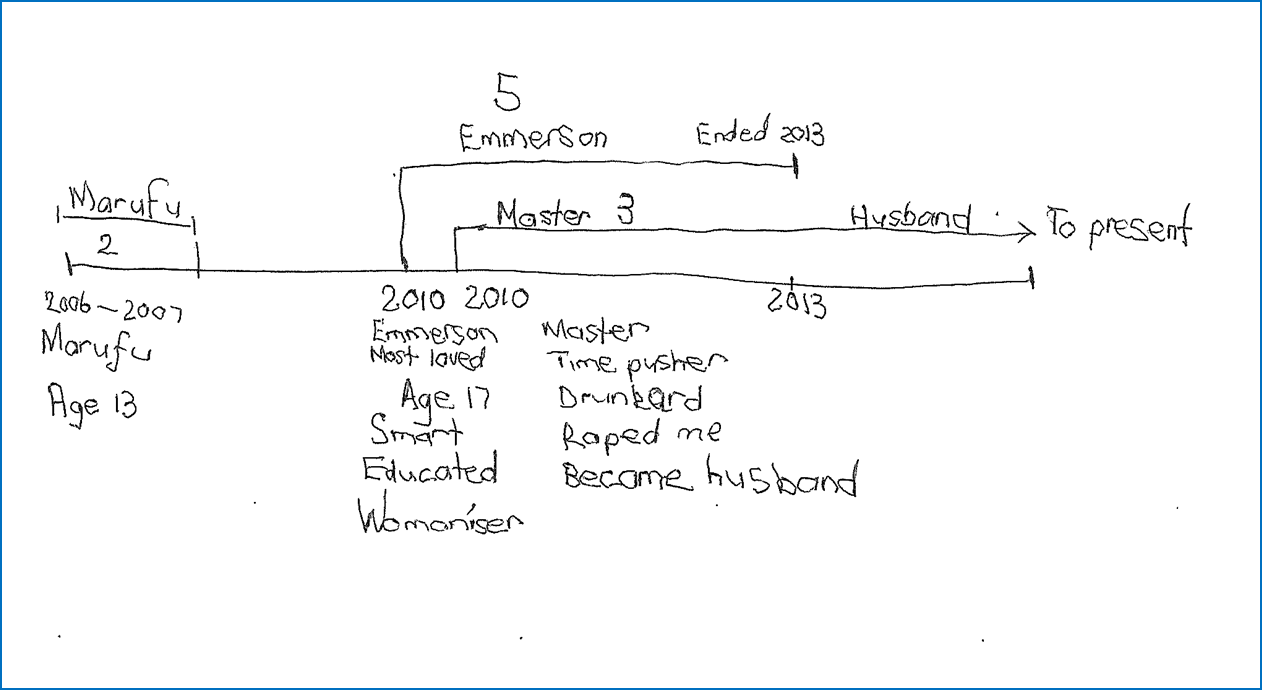 5
Emmerson
Ended 2013
Marufu
Master 3
Husband
To present
2
2006-2007
2010
2010
2013
Marufu
Age 13
Emmerson
Most loved
Age 17
Smart
Educated
Womaniser
Master
Time pusher
Drunkard
Raped me
Become husband